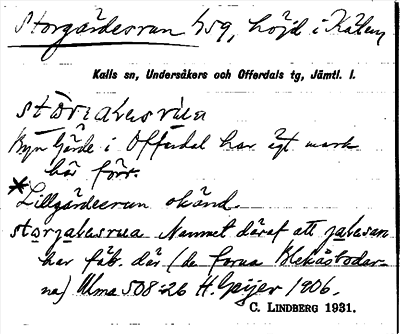 Storgärdesrun 459, höjd i Kälen
Kalls sn, Undersåkers och Offerdals tg, Jämtl. l.
storjalasrua
Byn Gärde i Offerdal har ägt mark
här förr.
*Lillgärdesrun okänd.
storjalasrua Namnet däraf att jalasan
har fäb. där (de forna Blekåsbodar-
na) Ulma 508:26 H. Geijer 1906.
C. LINDBERG 1931.